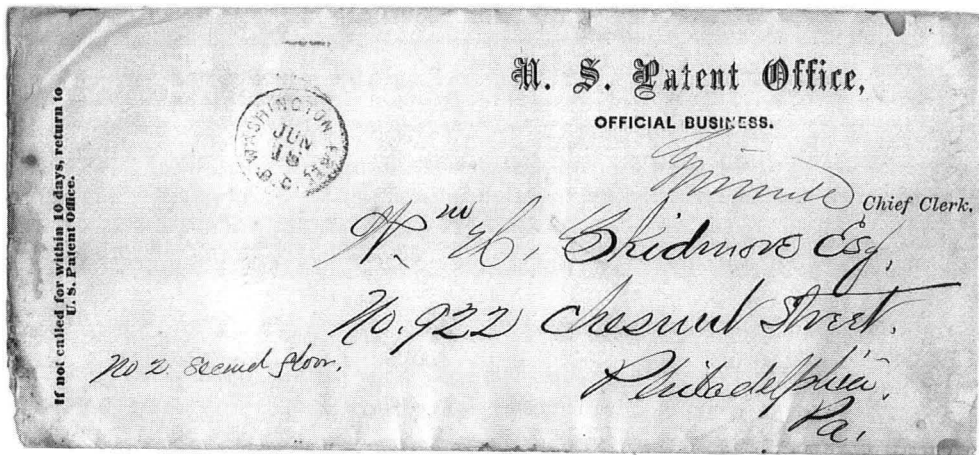 If not called for within 10 days, return to
U. S. Patent Office.
WASHINGTON FREE
JUN
18
D.C.
U. S. Patent Office,
OFFICIAL BUSINESS.
Chief Clerk.
Wm H. Skidmore Esq.
No. 922 Chesnut Street.
No 2 Second floor.
Philadelphia.
Pa.